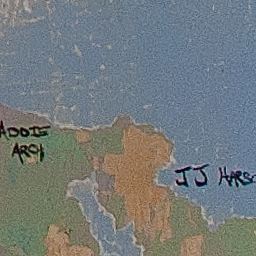 ADDIE
ARCH
JJ HARSO